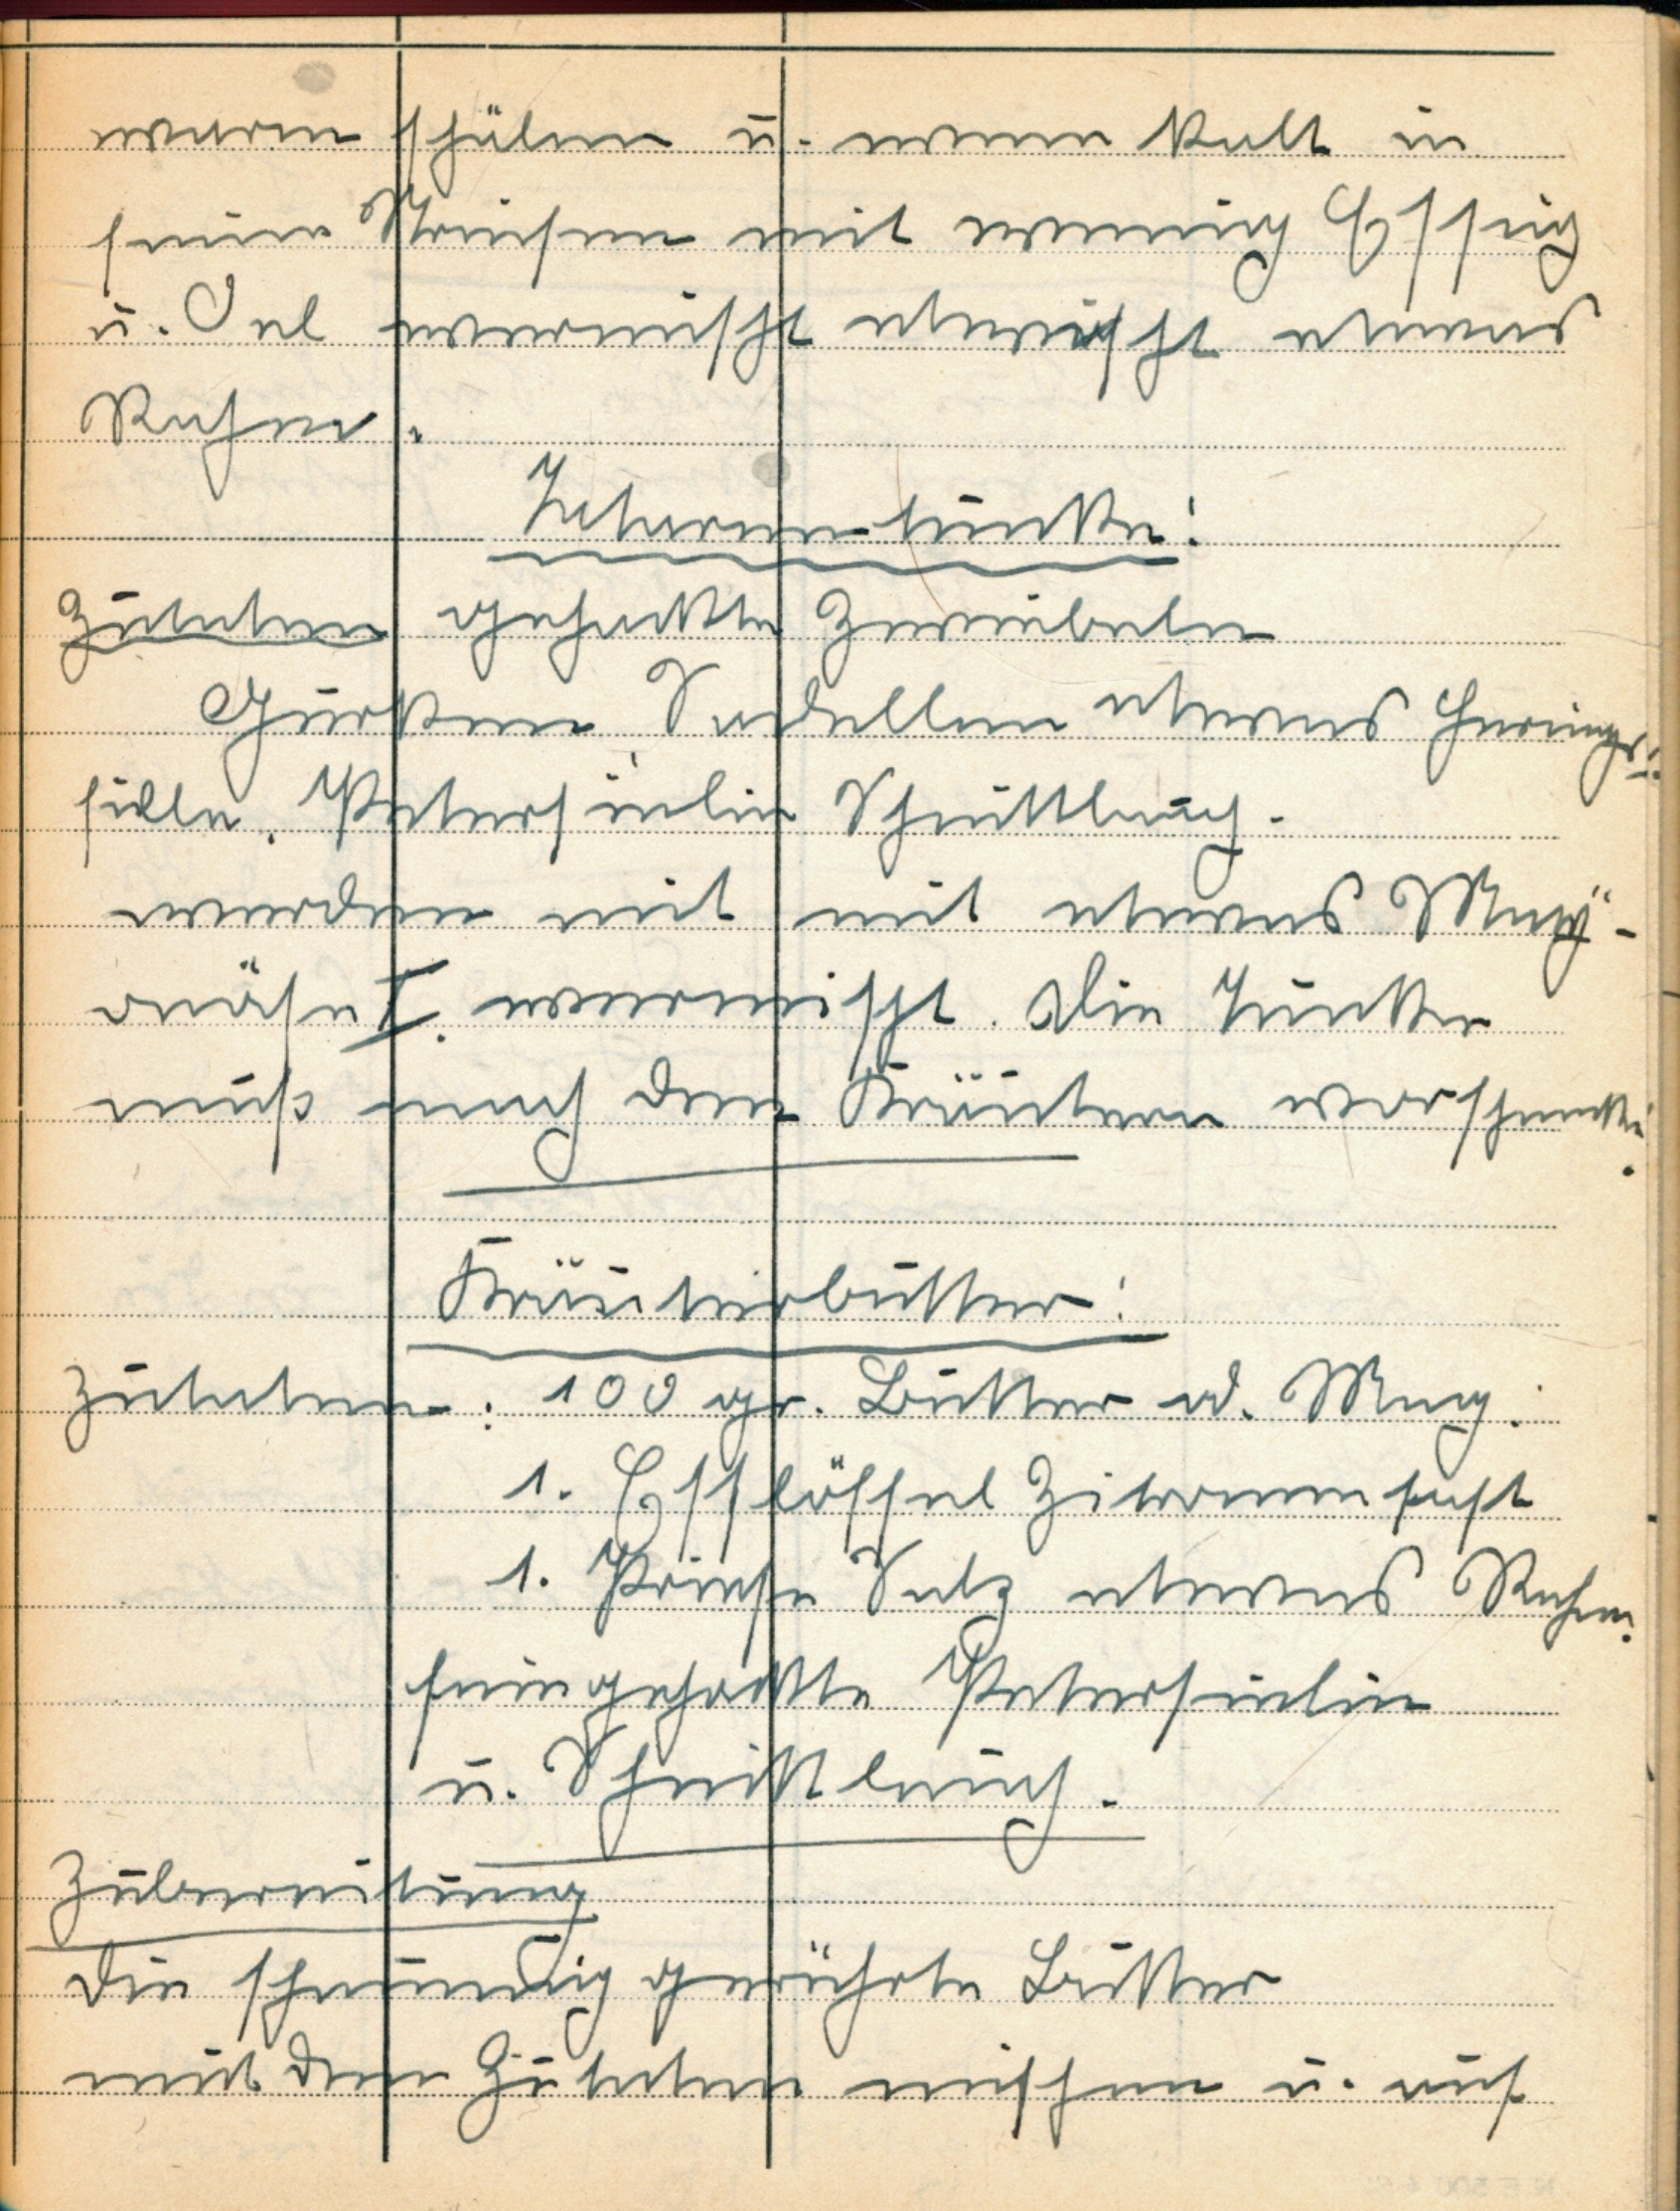 warm schälen u. wenn kalt in
feine Streifen mit wenig Essig
u. Oel vermischt etwischt etwas
Rahm.
Tatarentunke:
Zutaten gehackte Zwiebeln
Gurken, Sardellen etwas Herings-
fille, Petersielie Schnittlauch.
werden mit mit etwas May-
onäse I. vermischt. Die Tunke
muß nach den Kräutern vorschmecken.
Kräuterbutter:
Zutaten: 100 gr. Butter od. Marg.
1. Esslöffel Zitronensaft
1. Priese Salz etwas Rahm.
feingehakte Petersielie
u. Schnittlauch.
Zubereitung
Die schaumig gerührte Butter
mit den Zutaten mischen u. auf